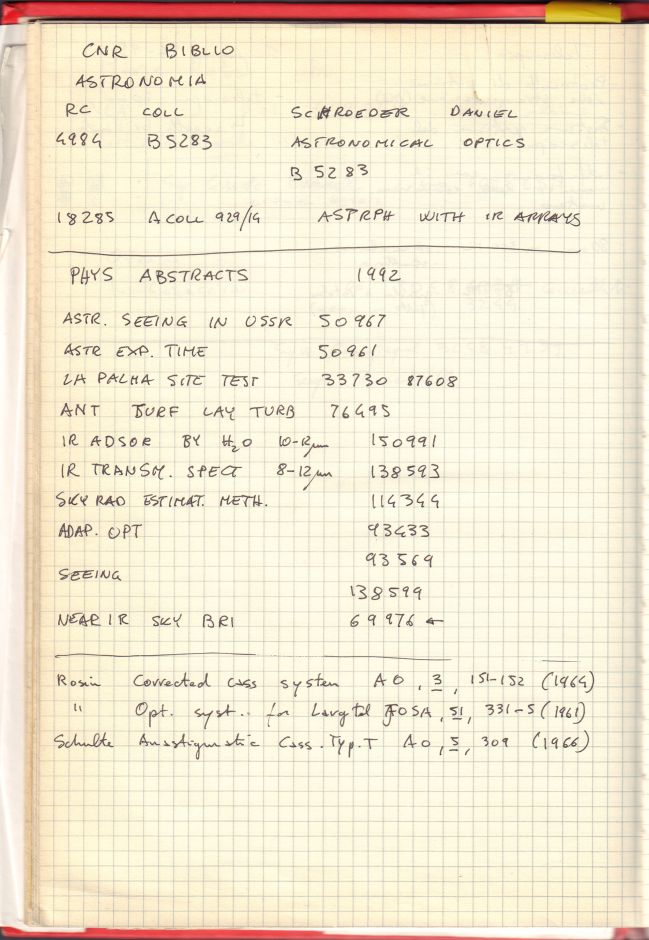 CNR BIBLIO
ASTRONOMIA
RC COLL SCHROEDER DANIEL
4984 B5283 ASTRONOMICAL OPTICS
B 5283
18285 A COLL 929/14 ASTRPH WITH IR ARRAYS
PHYS ABSTRACTS 1992
ASTR. SEEING IN USSR 50967
ASTR EXP. TIME 50961
LA PALMA SITE TEST 33730 87608
ANT SURF LAY TURB 76495
IR ADSOR BY H2O 10-12μm 150991
IR TRANSM. SPECT 8-12μm 138593
SKY RAD ESTIMAT. METH. 114344
ADAP. OPT 93433
93569
SEEING
138599
NEAR IR SKY BRI 69976 ←
Rosin Corrected Cass system AO, 3, 151-152 (1964)
" Opt. syst.. for Large tel JOSA, 51, 331-5 (1961)
Schulte Anastigmatic Cass. Typ. T AO, 5, 309 (1966)